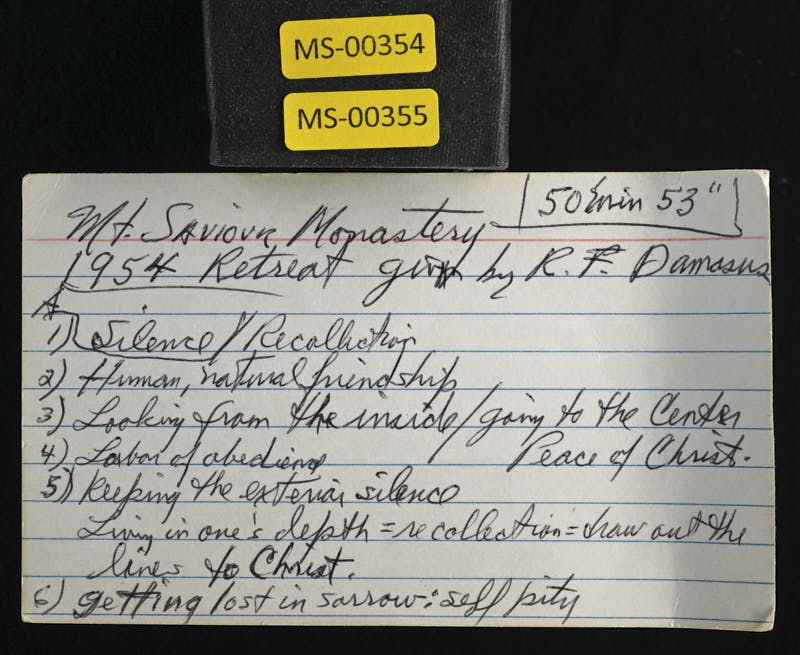 MS-00354
MS-00355
50 min 53"
Mt. Saviour Monastery
1954 Retreat given by R. F. Damasus
A
1) Silence / Recollection
2) Human, natural friendship
3) Looking from the inside / going to the Center
4) Labor of obedience Peace of Christ.
5) Keeping the exterior silence
Living in one's depth = recollection = draw out the
lines to Christ.
6) getting lost in sorrow: self pity